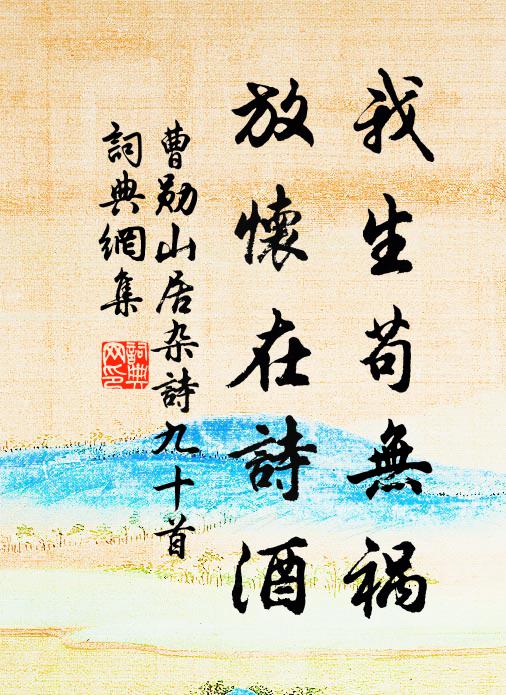 我生苟無禍
放懷在詩酒
曹勛山居杂詩九十首
詞典網集
詞典網印